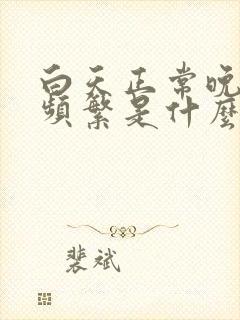 白天正常晚
频繁是什么
裴斌